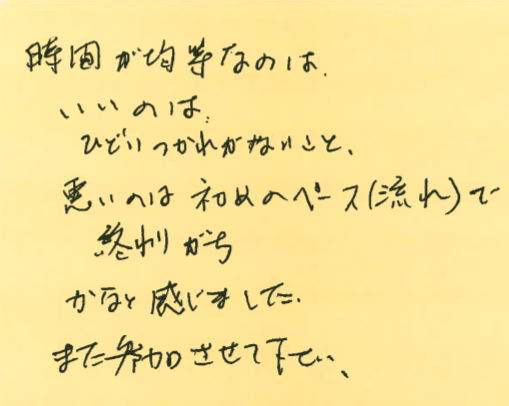 時間が均等なのは、
いいのは、
ひどいつかれがないこと、
悪いのは初めのペース(流れ)で
終わりがち
かなと感じました。
また参加させて下さい、